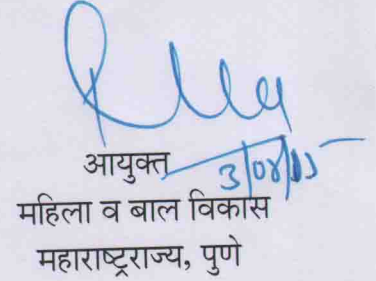 आयुक्त
महिला व बाल विकास
महाराष्ट्रराज्य, पुणे